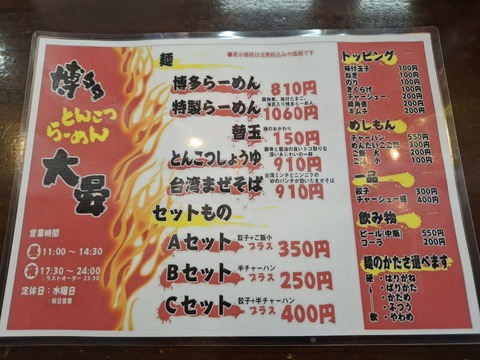 博多
とんこつ
らーめん
大晏
営業時間
昼11:00 ～ 14:30
夜17:30 ～ 24:00
ラストオーダー 23:30
定休日：水曜日
・祝日営業
●表示価格は消費税込みの価格です
麺
博多らーめん 810円
特製らーめん 1060円
替玉 麺のおかわり 150円
とんこつしょうゆ 910円
台湾まぜそば 910円
台湾ミンチとニンニクの
Wのパンチが効いたまぜそば
セットもの
Aセット 餃子+ご飯小 プラス 350円
Bセット 半チャーハン プラス 250円
Cセット 餃子+半チャーハン プラス 400円
トッピング
味付玉子 100円
ねぎ 100円
のり 100円
きくらげ 100円
チャーシュー 200円
豚角煮 200円
キムチ 200円
めしもん
チャーハン 550円
めんたいこご飯 300円
ご飯 中 200円
ご飯 小 150円
一品
餃子 300円
チャーシュー 400円
飲み物
ビール(中瓶) 550円
コーラ 200円
麺のかたさ選べます
硬・はりがね
・ばりかた
・かため
・ふつう
軟・やわめ